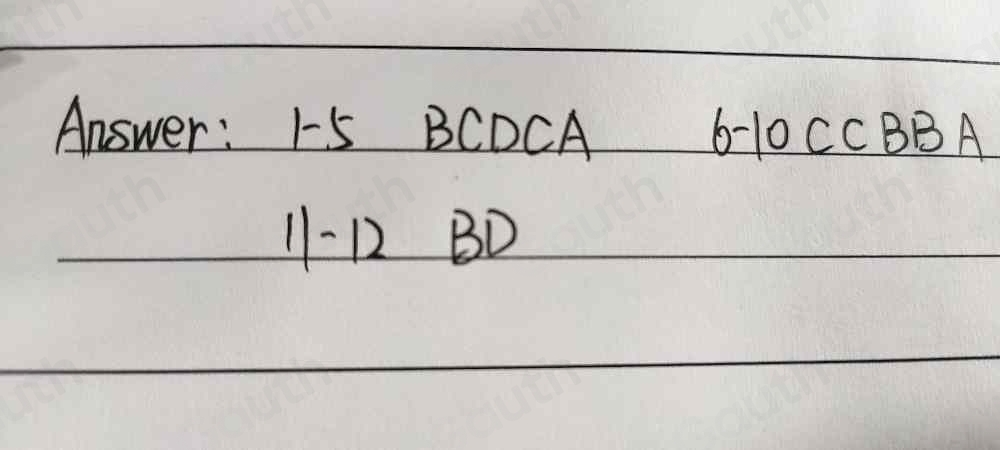 Answer: 1-5 BCDCA 6-10 CCBBA
11-12 BD